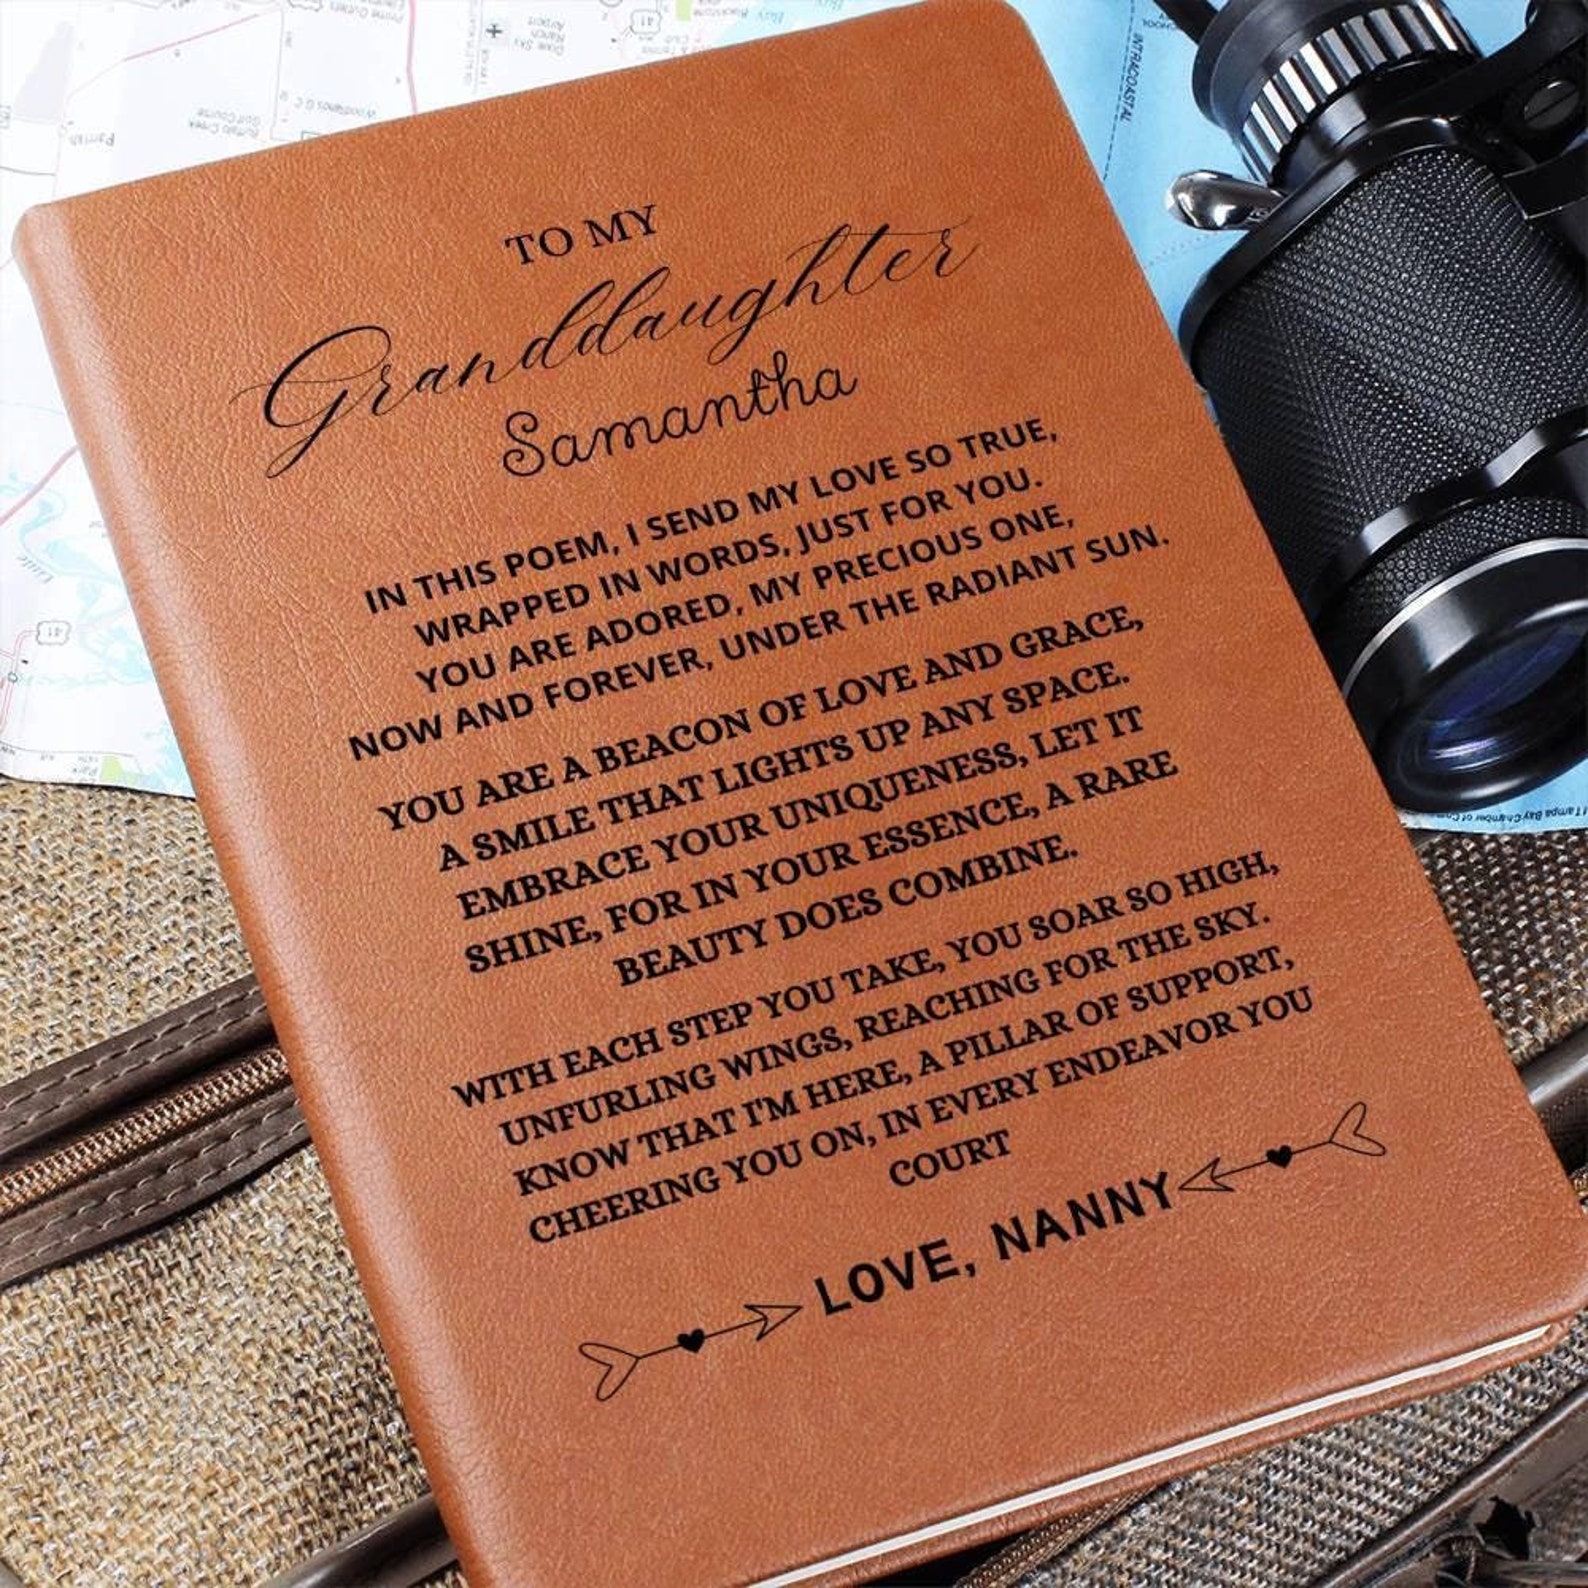 TO MY
Granddaughter
Samantha
IN THIS POEM, I SEND MY LOVE SO TRUE,
WRAPPED IN WORDS, JUST FOR YOU.
YOU ARE ADORED, MY PRECIOUS ONE,
NOW AND FOREVER, UNDER THE RADIANT SUN.
YOU ARE A BEACON OF LOVE AND GRACE,
A SMILE THAT LIGHTS UP ANY SPACE.
EMBRACE YOUR UNIQUENESS, LET IT
SHINE, FOR IN YOUR ESSENCE, A RARE
BEAUTY DOES COMBINE.
WITH EACH STEP YOU TAKE, YOU SOAR SO HIGH,
UNFURLING WINGS, REACHING FOR THE SKY.
KNOW THAT I'M HERE, A PILLAR OF SUPPORT,
CHEERING YOU ON, IN EVERY ENDEAVOR YOU
COURT
LOVE, NANNY
INTRACOASTAL
Airport
Ranch
Dixie Sky
Woodlands G C
Golf Course
Buffalo Creek
Parrish
41
41